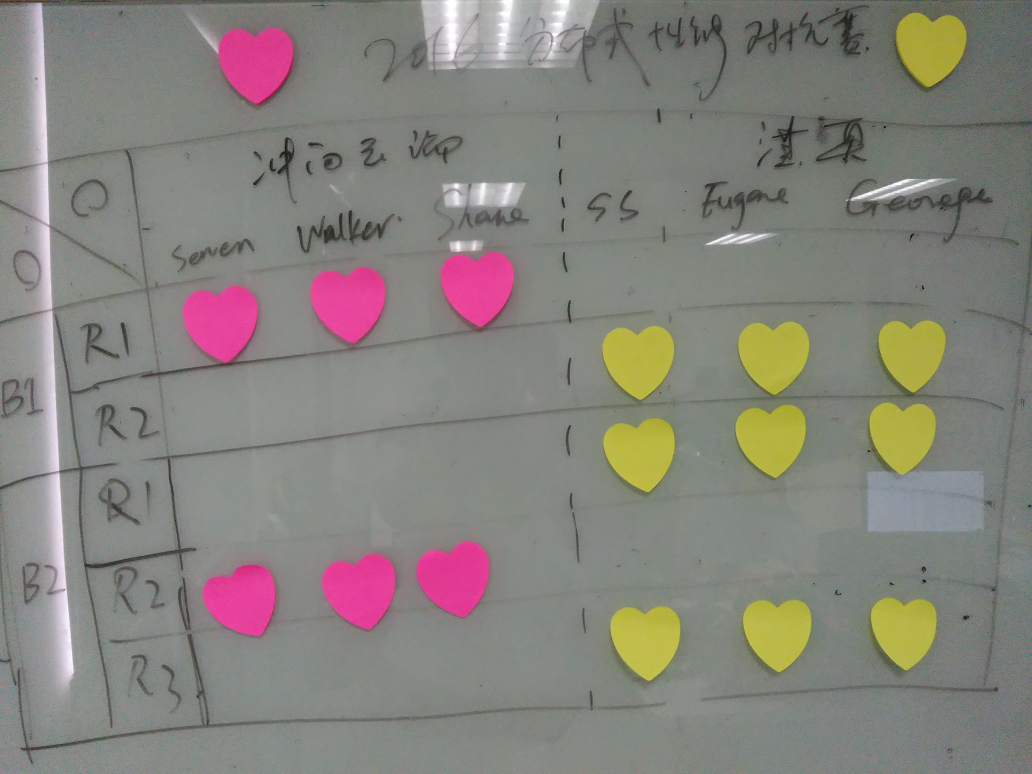 2016 分布式性能对抗赛
冲向云海 渣项
Seven Walker Shane SS Eugene George
B1 R1
R2
R1
B2 R2
R3